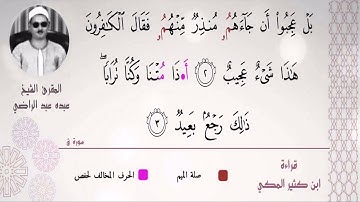 بَلْ عَجِبُوٓا۟ أَن جَآءَهُمُۥ مُنذِرٌ مِّنْهُمُۥ فَقَالَ ٱلْكَٰفِرُونَ
هَٰذَا شَىْءٌ عَجِيبٌ ٢ أَ۟ذَا مُتْنَا وَكُنَّا تُرَابًا ۖ
ذَٰلِكَ رَجْعٌۢ بَعِيدٌ ٣
القارئ الشيخ
عبده عبد الراضي
سورة ق
قراءة
ابن كثير المكي
صلة الميم
الحرف المخالف لحفص